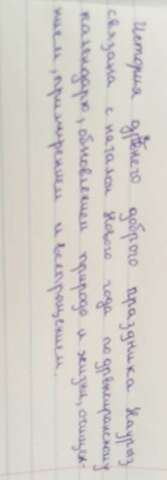 История древнего доброго праздника Наурыз
связана с началом Нового года по древнеиранскому
календарю, обновлением природы и жизни, очище-
нием, примирением и всепрощением.